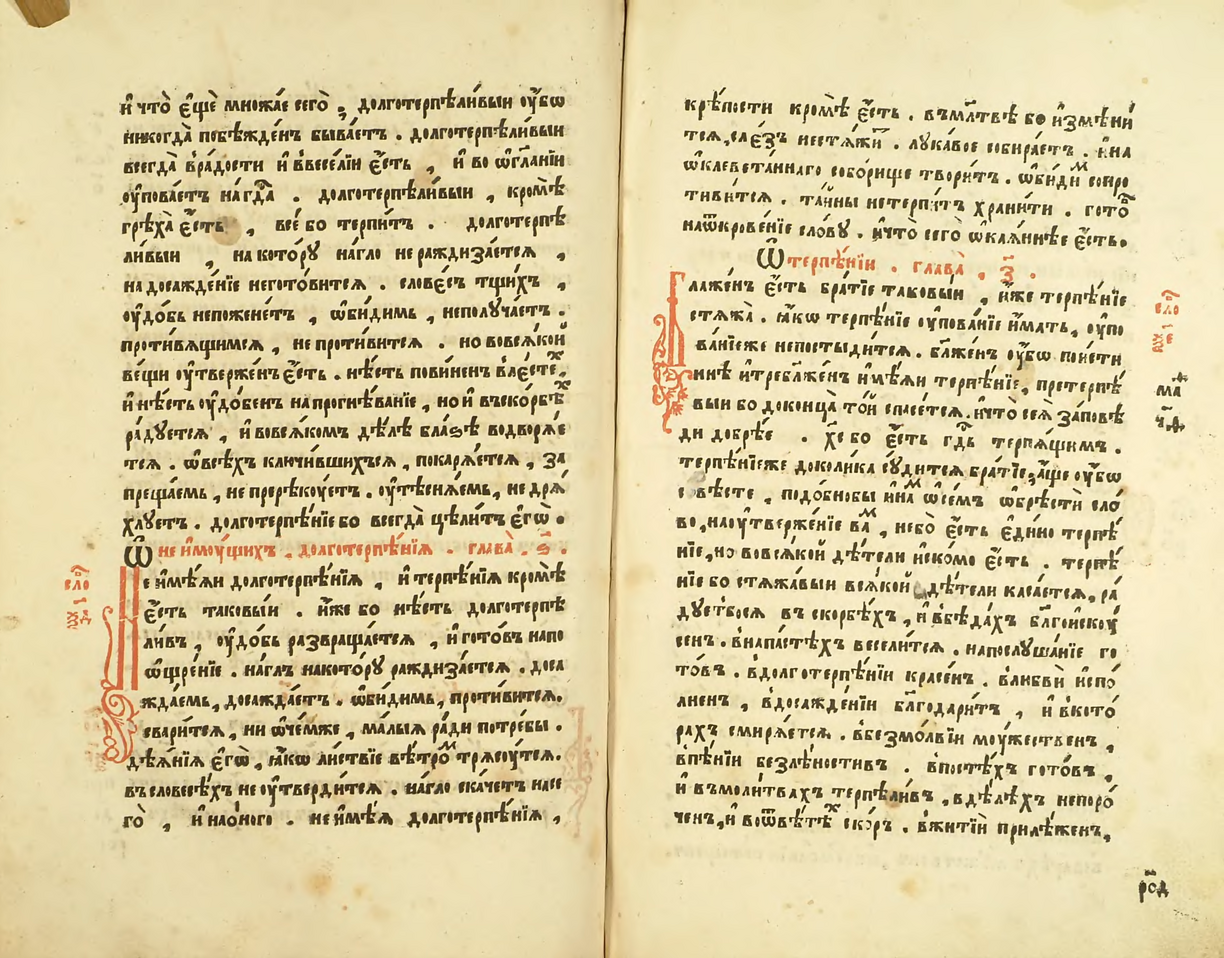 и҆ что̀ є҆щѐ мно́жае сегѡ̀ ; долготерпѣли́выи ᲂу҆́бѡ
никогда̀ побѣжде́нъ быва́етъ . долготерпѣли́выи
всегда̀ вра́дости и҆ ввесе́лїи є҆́сть , и҆ во ѡ҆гла́нїи
ᲂу҆пова́етъ на гда̀ . долготерпѣли́выи , кромѣ̀
грѣха̀ є҆́сть , все́ бо терпи́тъ . долготерпѣ
ли́выи , на кото́рꙋ на́гло не раждиза́етсѧ ,
на досажде́нїе него́товитсѧ . слове́съ тщи́хъ ,
ᲂу҆до́бь непожене́тъ , ѡ҆би́димь , неполꙋча́етъ .
проти́вѧщимсѧ , не проти́витсѧ . но вовсѧ́кой
ве́щи ᲂу҆твержде́нъ є҆́сть . нѣ́сть пови́ненъ встрⷭ҇те́ⷯ ,
и҆ нѣ́сть ᲂу҆до́бенъ на прогнѣ́ванїе , но и҆ въско́рбѣⷯ
ра́дꙋетсѧ , и҆ вовсѧ́комъ дѣ́лѣ бла́ѕѣ водворѧ́е
тсѧ . ѡ҆всѣ́хъ ключи́вшихсѧ , покарѧ́етсѧ , за
преща́емь , не прерѣкꙋ́етъ . ᲂу҆тѣснѧ́емь , не дрѧ́
хлꙋетъ . долготерпѣ́нїе бо всегда̀ цѣли́тъ є҆го̀ .
Ѡ не и҆мꙋ́щихъ . долготерпѣ́нїѧ . глава̀ . ѕ҃ .
Не и҆мѣ́ѧи долготерпѣ́нїѧ , и҆ терпѣ́нїѧ кромѣ̀
є҆́сть таковы́и . и҆́же бо нѣ́сть долготерпѣ
ли́въ , ᲂу҆до́бь развраща́етсѧ , и҆ гото́въ напо
ѡ҆щре́нїе . на́глъ накото́рꙋ раждиза́етсѧ . доса
жда́емь , досажда́етъ . ѡ҆би́димь , проти́витсѧ .
свари́тсѧ , ни ѡ҆че́мже , ма́лыѧ ра́ди потре́бы .
дѣѧ́нїѧ є҆гѡ̀ , ꙗ҆́кѡ ли́ствїе вѣ́троⷨ трѧсꙋ́тсѧ .
въ словесѣ́хъ не ᲂу҆тверди́тсѧ . на́гло ска́четъ насе
го̀ , и҆ нао́ного . не и҆мѣ́ѧ долготерпѣ́нїѧ ,
сло́
ѱ҃д
крѣ́пости кромѣ̀ є҆́сть . въмлт҃вѣ бо и҆змѣни́
тсѧ , сле́зъ нестѧ́жи́ . лꙋка́вое собира́етъ . и҆ на
ѡ҆клевета́ннаго собо́рище твори́тъ . ѡ҆би́диⷨ сопро
ти́витсѧ . та́йны нетерпи́тъ храни́ти . гото́в
наѿкрове́нїе сло́вꙋ . и҆ что̀ сего̀ ѡ҆каѧ́ннѣе є҆́сть .
Ѡ терпѣ́нїи . глава̀ , з҃ .
Блаже́нъ є҆́сть бра́тїе таковы́и , и҆́же терпѣ́нїе
стѧжа̀ . ꙗ҆́кѡ терпѣ́нїе ᲂу҆пова́нїе и҆́мать , ᲂу҆по
ва́нїеже непостыди́тсѧ . бл҃же́нъ ᲂу҆́бѡ пои́сти
ннѣ и҆ требл҃же́нъ и҆мѣ́ѧи терпѣ́нїе , претерпѣ́
выи бо доконца̀ то́й спасе́тсѧ . и҆ что̀ сеѧ̀ за́повѣ
ди добрѣ́е . хс҃ бо є҆́сть гд҃ь терпѧ́щимъ .
терпѣ́нїеже доко́лика сꙋ́дитсѧ бра́тїе ; а҆́ще ᲂу҆́бѡ
совѣ́сте , подо́бнобы и҆ на́ⷨ ѡ҆ се́мъ ѡ҆брѣстѝ сло́
во , наᲂу҆твержде́нїе ва́ⷨ , небо̀ є҆́сть є҆ди́но терпѣ́
нїе , но вовсѧ́кой дѣ́тели и҆ско́мо є҆́сть . терпѣ́
нїе бо стѧжа́выи всѧ́кой дѣ́тели каса́етсѧ , ра́
дꙋетбосѧ въ ско́рбѣхъ , и҆ вбѣда́хъ бл҃гои́скꙋ
сенъ . внапа́стѣхъ весели́тсѧ . напослꙋша́нїе го
то́въ . вдолготерпѣ́нїи красе́нъ . влюбвѝ и҆спо́
лненъ , вдосажде́нїи бл҃годари́тъ , и҆ вкото́
рахъ смирѧ́етсѧ . вбезмо́лвїи мꙋ́жественъ ,
впѣ́нїи безлѣ́ностивъ . впостѣ́хъ гото́въ ,
и҆ въмоли́твахъ терпѣли́въ , вдѣ́лѣхъ непоро́
ченъ , и҆ воѿвѣ́тѣⷯ ско́ръ . вжитїѝ прилѣ́женъ ,
сло́
ма
рс҃д